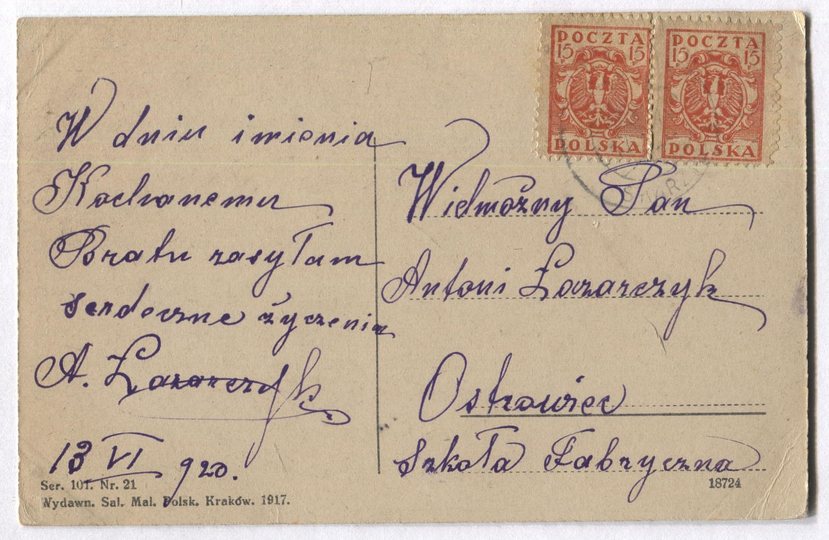 POCZTA
15 15
POLSKA
POCZTA
15 15
POLSKA
W dniu imienia
Kochanemu
Bratu zasyłam
serdeczne życzenia
A. Łazarczyk
13 VI 920.
Wielmożny Pan
Antoni Łazarczyk
Ostrowiec
Szkoła Fabryczna
Ser. 101. Nr. 21
Wydawn. Sal. Mal. Polsk. Kraków. 1917.
18724